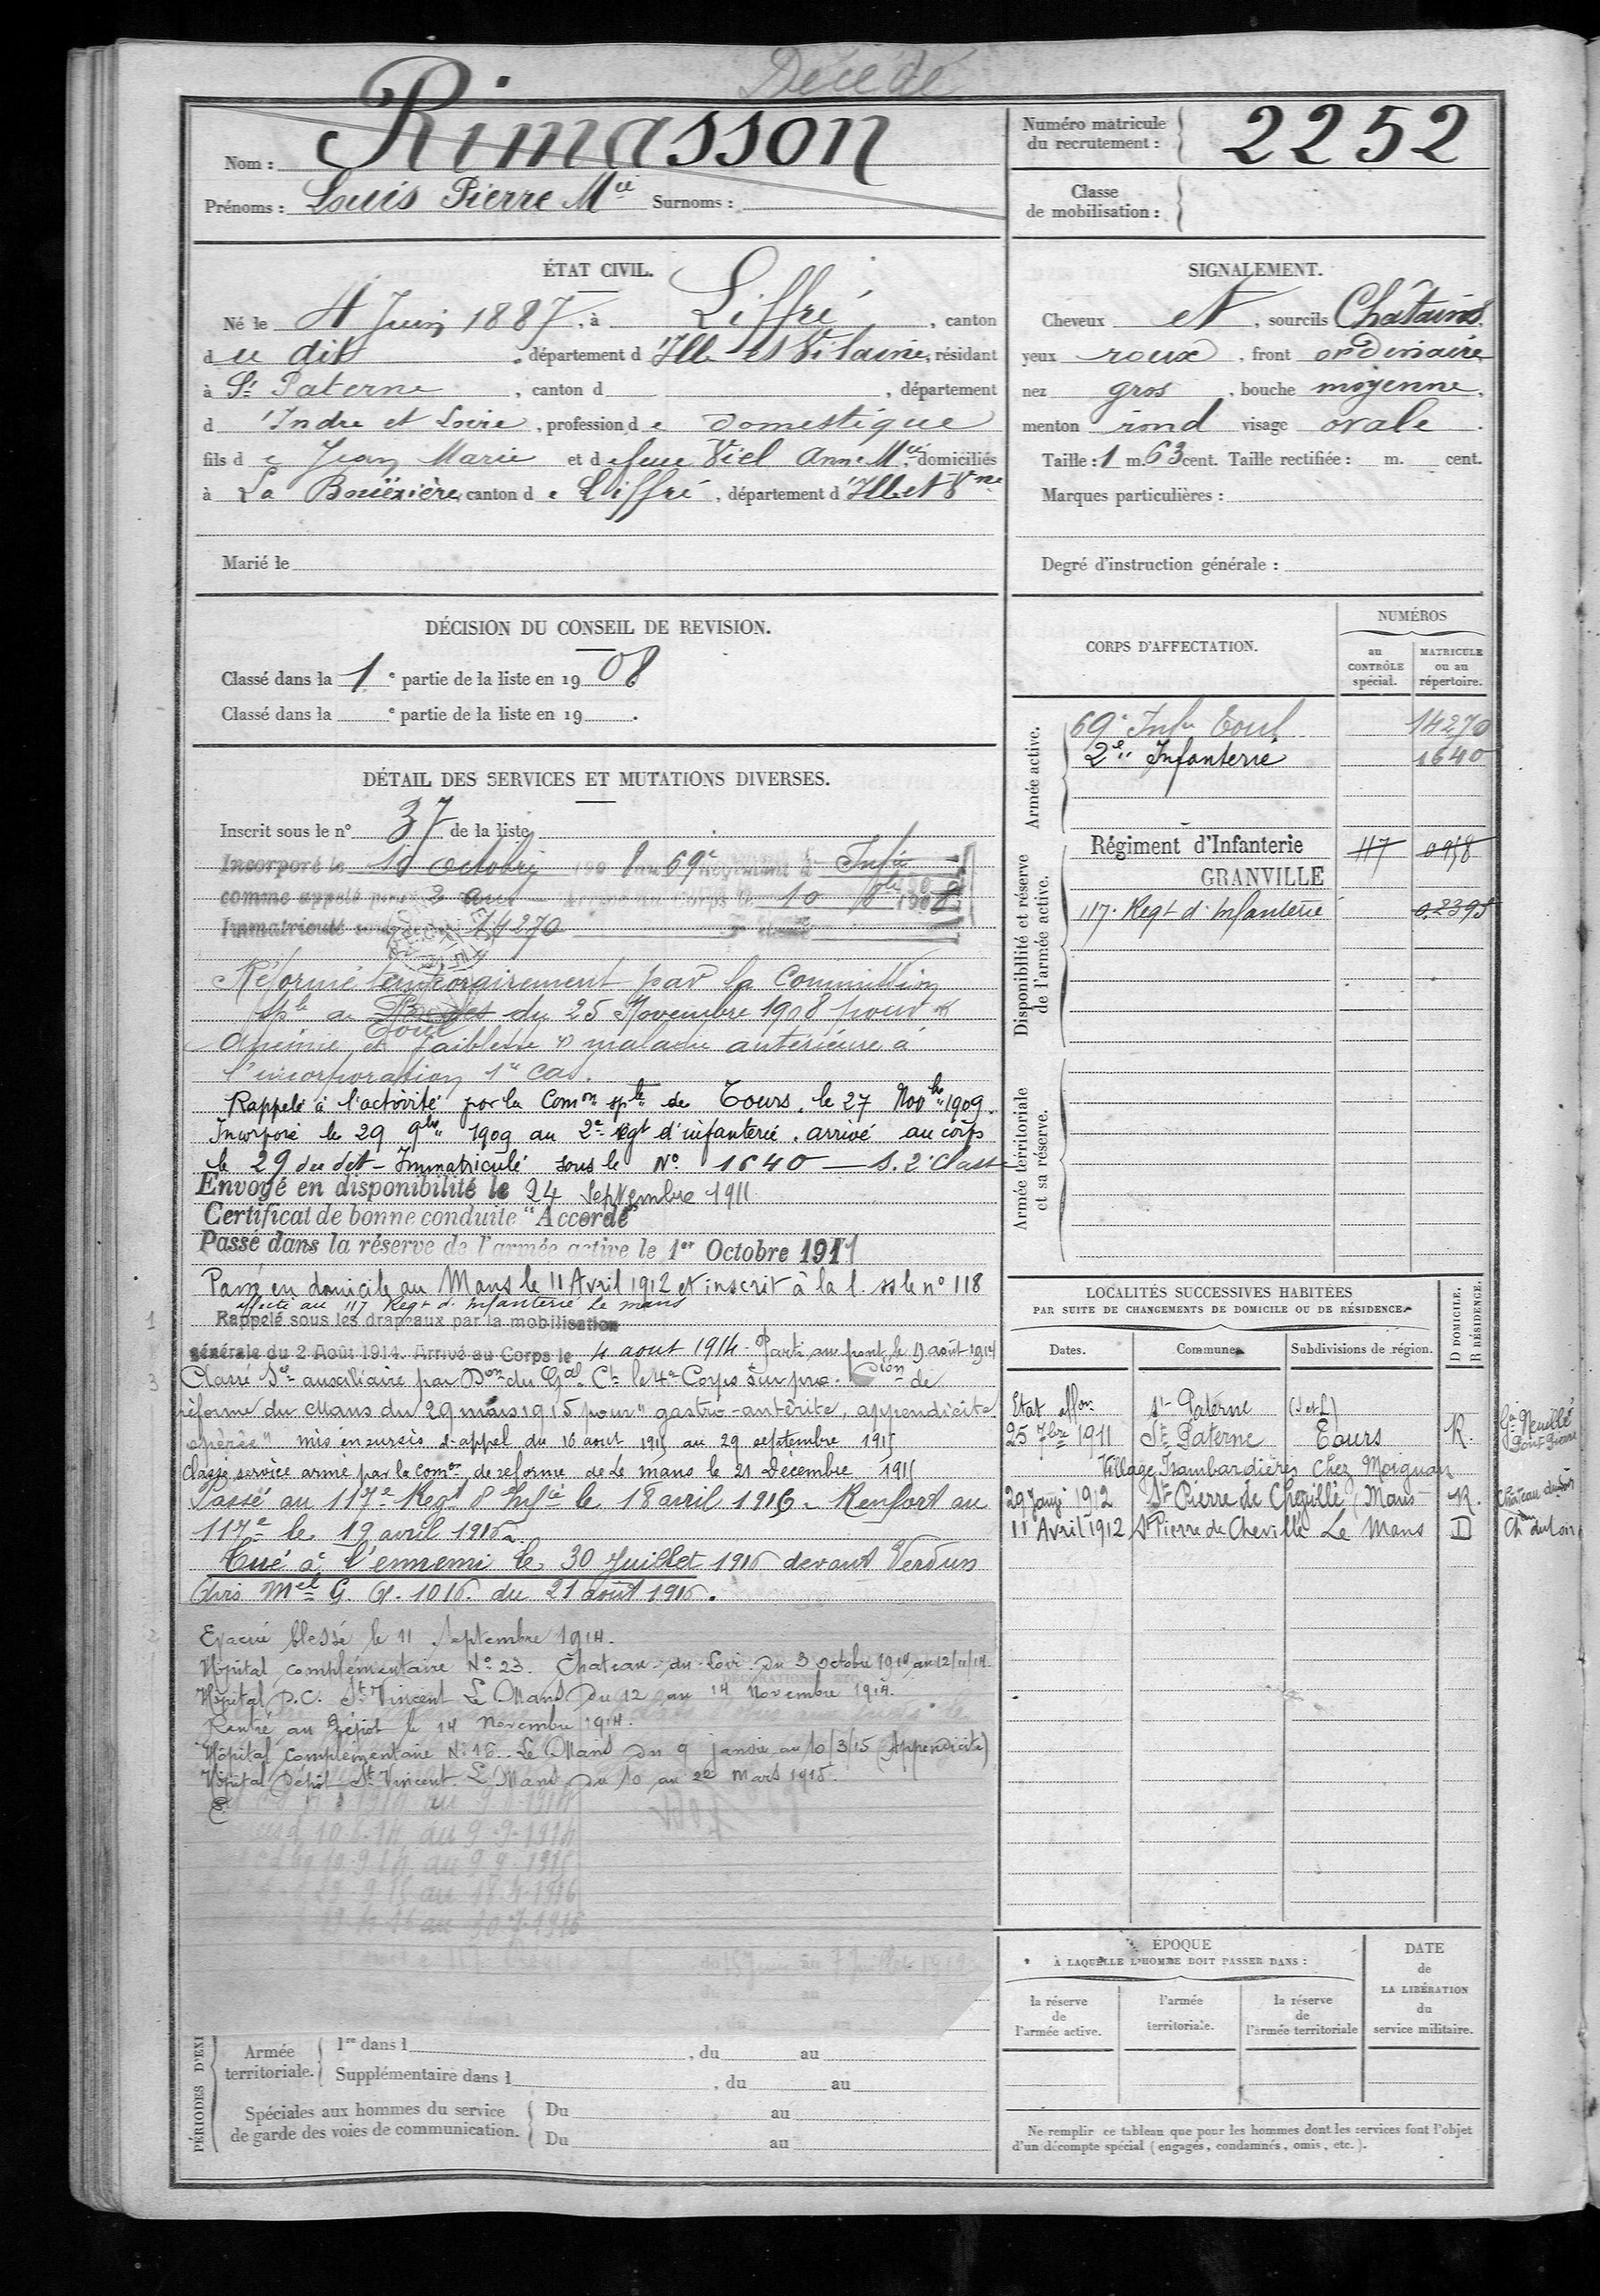 Décédé
Nom : Rimasson
Prénoms : Louis Pierre Mie Surnoms :
Numéro matricule du recrutement : 2252
Classe de mobilisation :
ÉTAT CIVIL.
Né le 4 Juin 1887, à Liffré, canton
du dit, département d'Ille et Vilaine, résidant
à St Paterne, canton d , département
d'Indre et Loire, profession de domestique
fils de Jean Marie et de feue Viel Anne Mie, domiciliés
à La Bouëxière, canton de Liffré, département d'Ille et Vne
Marié le
SIGNALEMENT.
Cheveux et, sourcils Châtains,
yeux roux, front ordinaire
nez gros, bouche moyenne,
menton rond visage ovale.
Taille : 1 m. 63 cent. Taille rectifiée : m. cent.
Marques particulières :
Degré d'instruction générale :
DÉCISION DU CONSEIL DE REVISION.
Classé dans la 1e partie de la liste en 1908
Classé dans la e partie de la liste en 19 .
DÉTAIL DES SERVICES ET MUTATIONS DIVERSES.
Inscrit sous le n° 37 de la liste
Incorporé le 10 octobre 1908 au 69e Régiment d' Infie
comme appelé pour 3 ans Arrivé au Corps le 10 8bre 1908
Immatriculé sous 14270
Réformé temporairement par la Commission
sple de Toul du 25 Novembre 1908 pour
Anémie et faiblesse maladie antérieure à
l'incorporation 1er cas.
Rappelé à l'activité par la Comon sple de Tours, le 27 Novbre 1909.
Incorporé le 29 9bre 1909 au 2e regt d'infanterie, arrivé au corps
le 29 du dit - Immatriculé sous le No 1640 — S. 2e Classe
Envoyé en disponibilité le 24 Septembre 1911
Certificat de bonne conduite "Accordé"
Passé dans la réserve de l'armée active le 1er Octobre 1911
Passé en domicile au Mans le 11 Avril 1912 et inscrit à la l. ss le n° 118
affecté au 117 Regt d'Infanterie Le Mans
Rappelé sous les drapeaux par la mobilisation
générale du 2 Août 1914. Arrivé au Corps le 4 aout 1914 - Parti au front le 9 août 1914
Classé Sce auxiliaire par Don du Gal Ct le 4e Corps sur pro. Cion de
réforme du Mans du 29 mars 1915 pour "gastro-antérite, appendicite
opérée" mis en sursis d'appel du 16 aout 1915 au 29 septembre 1915
Classé service armé par la comon de reforme de Le Mans le 21 Décembre 1915
Passé au 117e Regt d'Infie le 18 avril 1916. Renfort au
117e le 19 avril 1916.
Tué à l'ennemi le 30 Juillet 1916 devant Verdun
Avis Mel G. 1016 du 21 août 1916.
Evacué blessé le 11 Septembre 1914.
Hôpital complémentaire No 23. Chateau-du-Loir du 3 octobre 1914 au 12/11/14.
Hôpital D.C. St Vincent Le Mans Du 12 au 14 Novembre 1914.
Rentré au Dépôt le 14 Novembre 1914.
Hôpital complémentaire No 16 - Le Mans du 9 janvier au 10/3/15 (Appendicite)
Hôpital Dépôt St Vincent. Le Mans du 10 au 22 Mars 1915.
PÉRIODES D'EXE
Armée territoriale.
1re dans l , du au
Supplémentaire dans l , du au
Spéciales aux hommes du service de garde des voies de communication.
Du au
Du au
CORPS D'AFFECTATION.
NUMÉROS
au CONTRÔLE spécial.
MATRICULE ou au répertoire.
Armée active.
69e Infie Toul 14270
2e Infanterie 1640
Disponibilité et réserve de l'armée active.
Régiment d'Infanterie 117 0958
GRANVILLE
117e Regt d'Infanterie 02395
Armée territoriale et sa réserve.
LOCALITÉS SUCCESSIVES HABITÉES
PAR SUITE DE CHANGEMENTS DE DOMICILE OU DE RÉSIDENCE.
Dates. Communes. Subdivisions de région. D DOMICILE. R RÉSIDENCE.
St Paterne (I et L)
25 7bre 1911 St Paterne Tours R. Gie Neuillé Pont Pierre
Village Isambardières Chez Moignan
29 Janvr 1912 St Pierre de Chevillé (Mans R. Château du Loir
11 Avril 1912 St Pierre de Chevillé Le Mans D Ch du Loir
ÉPOQUE
À LAQUELLE L'HOMME DOIT PASSER DANS :
la réserve de l'armée active.
l'armée territoriale.
la réserve de l'armée territoriale
DATE de LA LIBÉRATION du service militaire.
Ne remplir ce tableau que pour les hommes dont les services font l'objet
d'un décompte spécial (engagés, condamnés, omis, etc.).